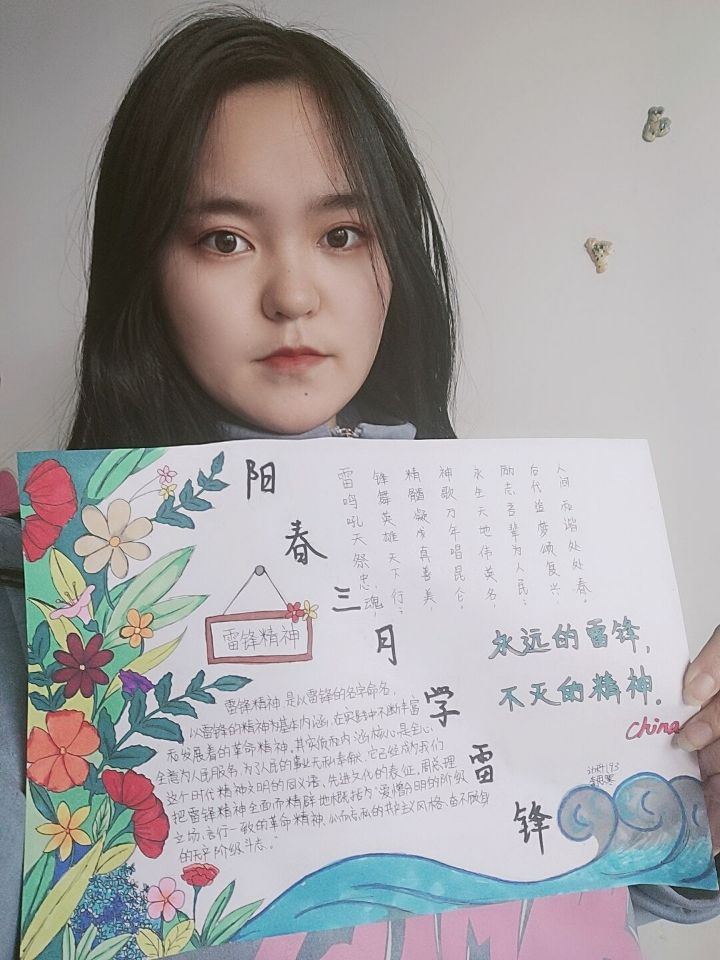 阳春三月学雷锋
雷鸣吼天祭忠魂,
锋舞英雄天下行;
精髓凝成真善美,
神歌万年唱昆仑;
永生天地伟英名,
励志吾辈为人民;
后代益梦颂复兴,
人间和谐处处春。
雷锋精神
永远的雷锋,
不灭的精神.
China
雷锋精神,是以雷锋的名字命名,
以雷锋的精神为基本内涵,在实践中不断丰富
和发展着的革命精神,其实质和内涵核心是全心
全意为人民服务,为了人民的事业无私奉献,它已经成为我们
这个时代精神文明的同义语,先进文化的表征,周总理
把雷锋精神全面而精辟地概括为“爱憎分明的阶级
立场,言行一致的革命精神,公而忘私的共产主义风格,奋不顾身
的无产阶级斗志。”